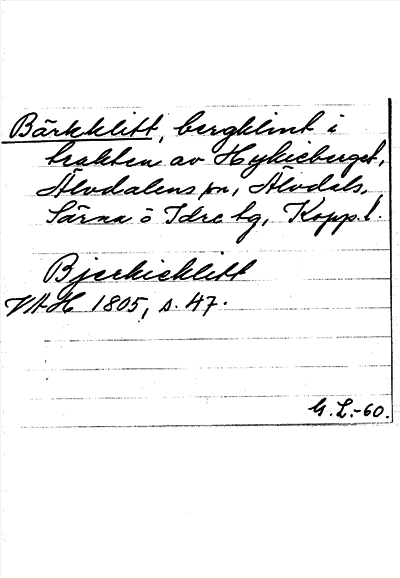 Bärkklitt, bergklint i
trakten av Hykieberget,
Älvdalens sn, Älvdals,
Särna o Idre tg, Kopp.l.
Bjerkieklitt
VAH 1805, s. 47.
G.L.-60.